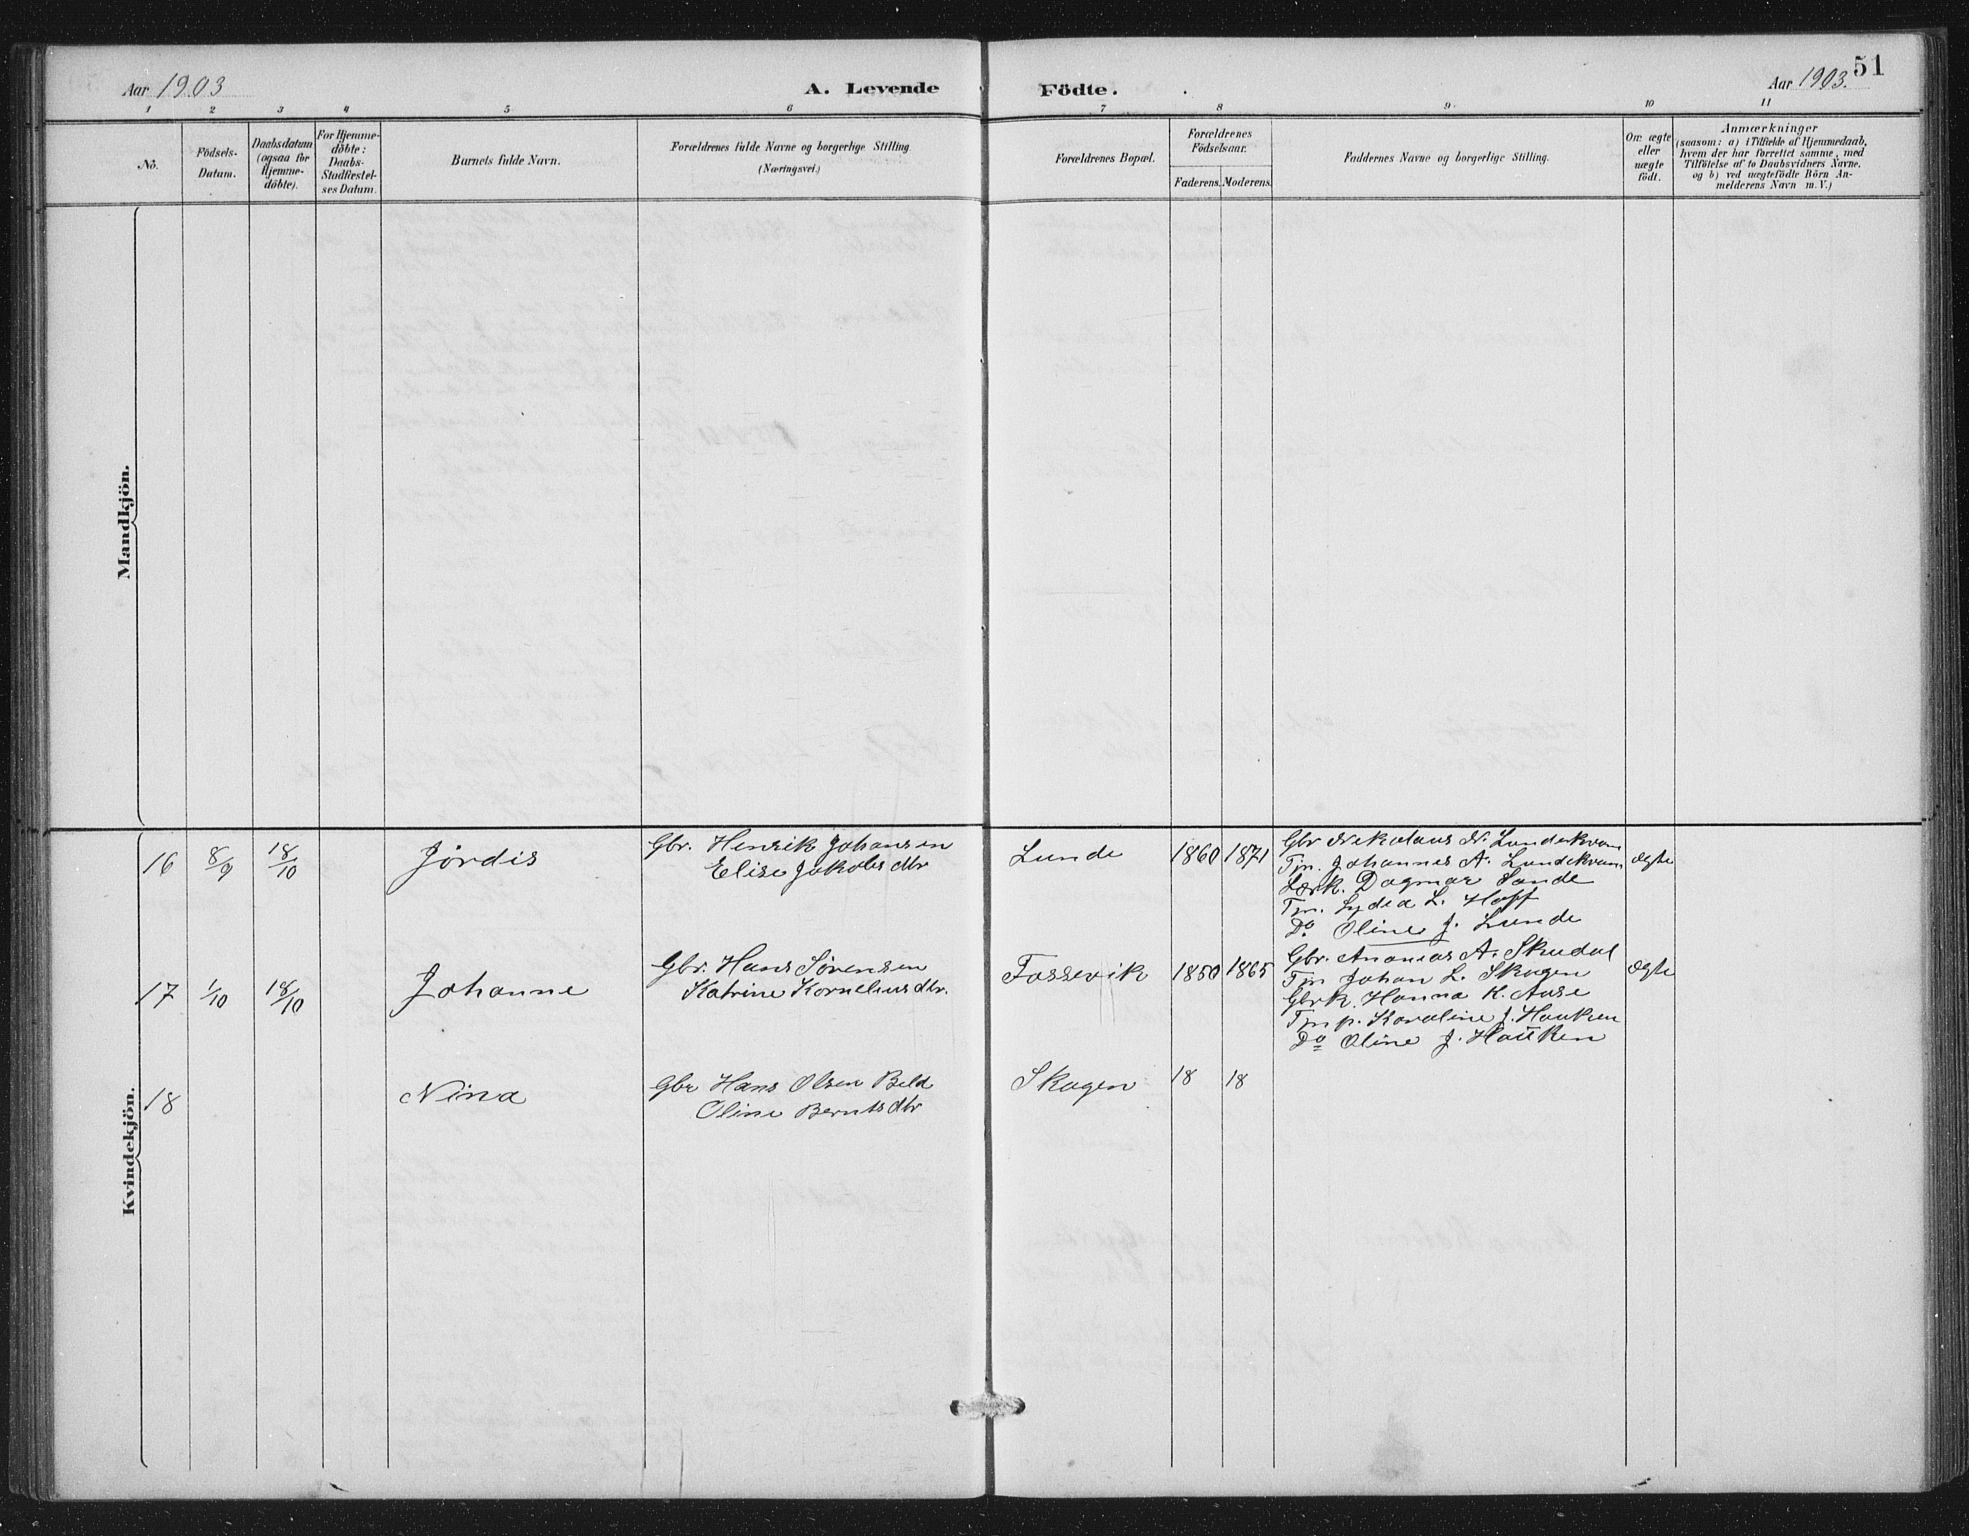 Aar 1903
A. Levende Födte.
Aar 1903.
51
1 2 3 4 5 6 7 8 9 10 11
Nö.
Födsels-
Datum.
Daabsdatum
(ogsaa for
Hjemme-
döbte).
For Hjemme-
döbte:
Daabs-
Stadfæstel-
ses Datum.
Barnets fulde Navn.
Forældrenes fulde Navne og borgerlige Stilling
(Næringsvei.)
Forældrenes Bopæl.
Forældrenes
Födselsaar.
Faderens. Moderens.
Faddernes Navne og borgerlige Stilling.
Om ægte
eller
uægte
födt.
Anmærkninger
(saasom: a) i Tilfælde af Hjemmedaab,
hvem der har forrettet samme, med
Tilföielse af to Daabsvidners Navne.
og b) ved uægtefödte Börn An-
melderens Navn m. V.)
Mandkjön.
Kvindekjön.
16 8/9 18/10 Jórdis
Gbr. Henrik Johansen
Elise Jakobsdtr
Lunde 1860 1871
Gbr Nikolaus N. Lundekvam
Tjn. Johannes A. Lundekvam
Lærk. Dagmar Sande
Tjn. Lydia L. Hoff
Do Oline J. Lunde
Ægte
17 1/10 18/10 Johanne
Gbr. Hans Sørensen
Katrine Korneliusdtr.
Fossevik 1850 1865
Gbr. Ananias A. Skudal
Tjn Johan L. Skagen
Gbrk. Hanna K. Aase
Tjn p. Karoline J. Hauken
Do Oline J. Hauken
Ægte
18 Nina
Gbr Hans Olsen Beld
Oline Berntsdtr
Skagen 18 18